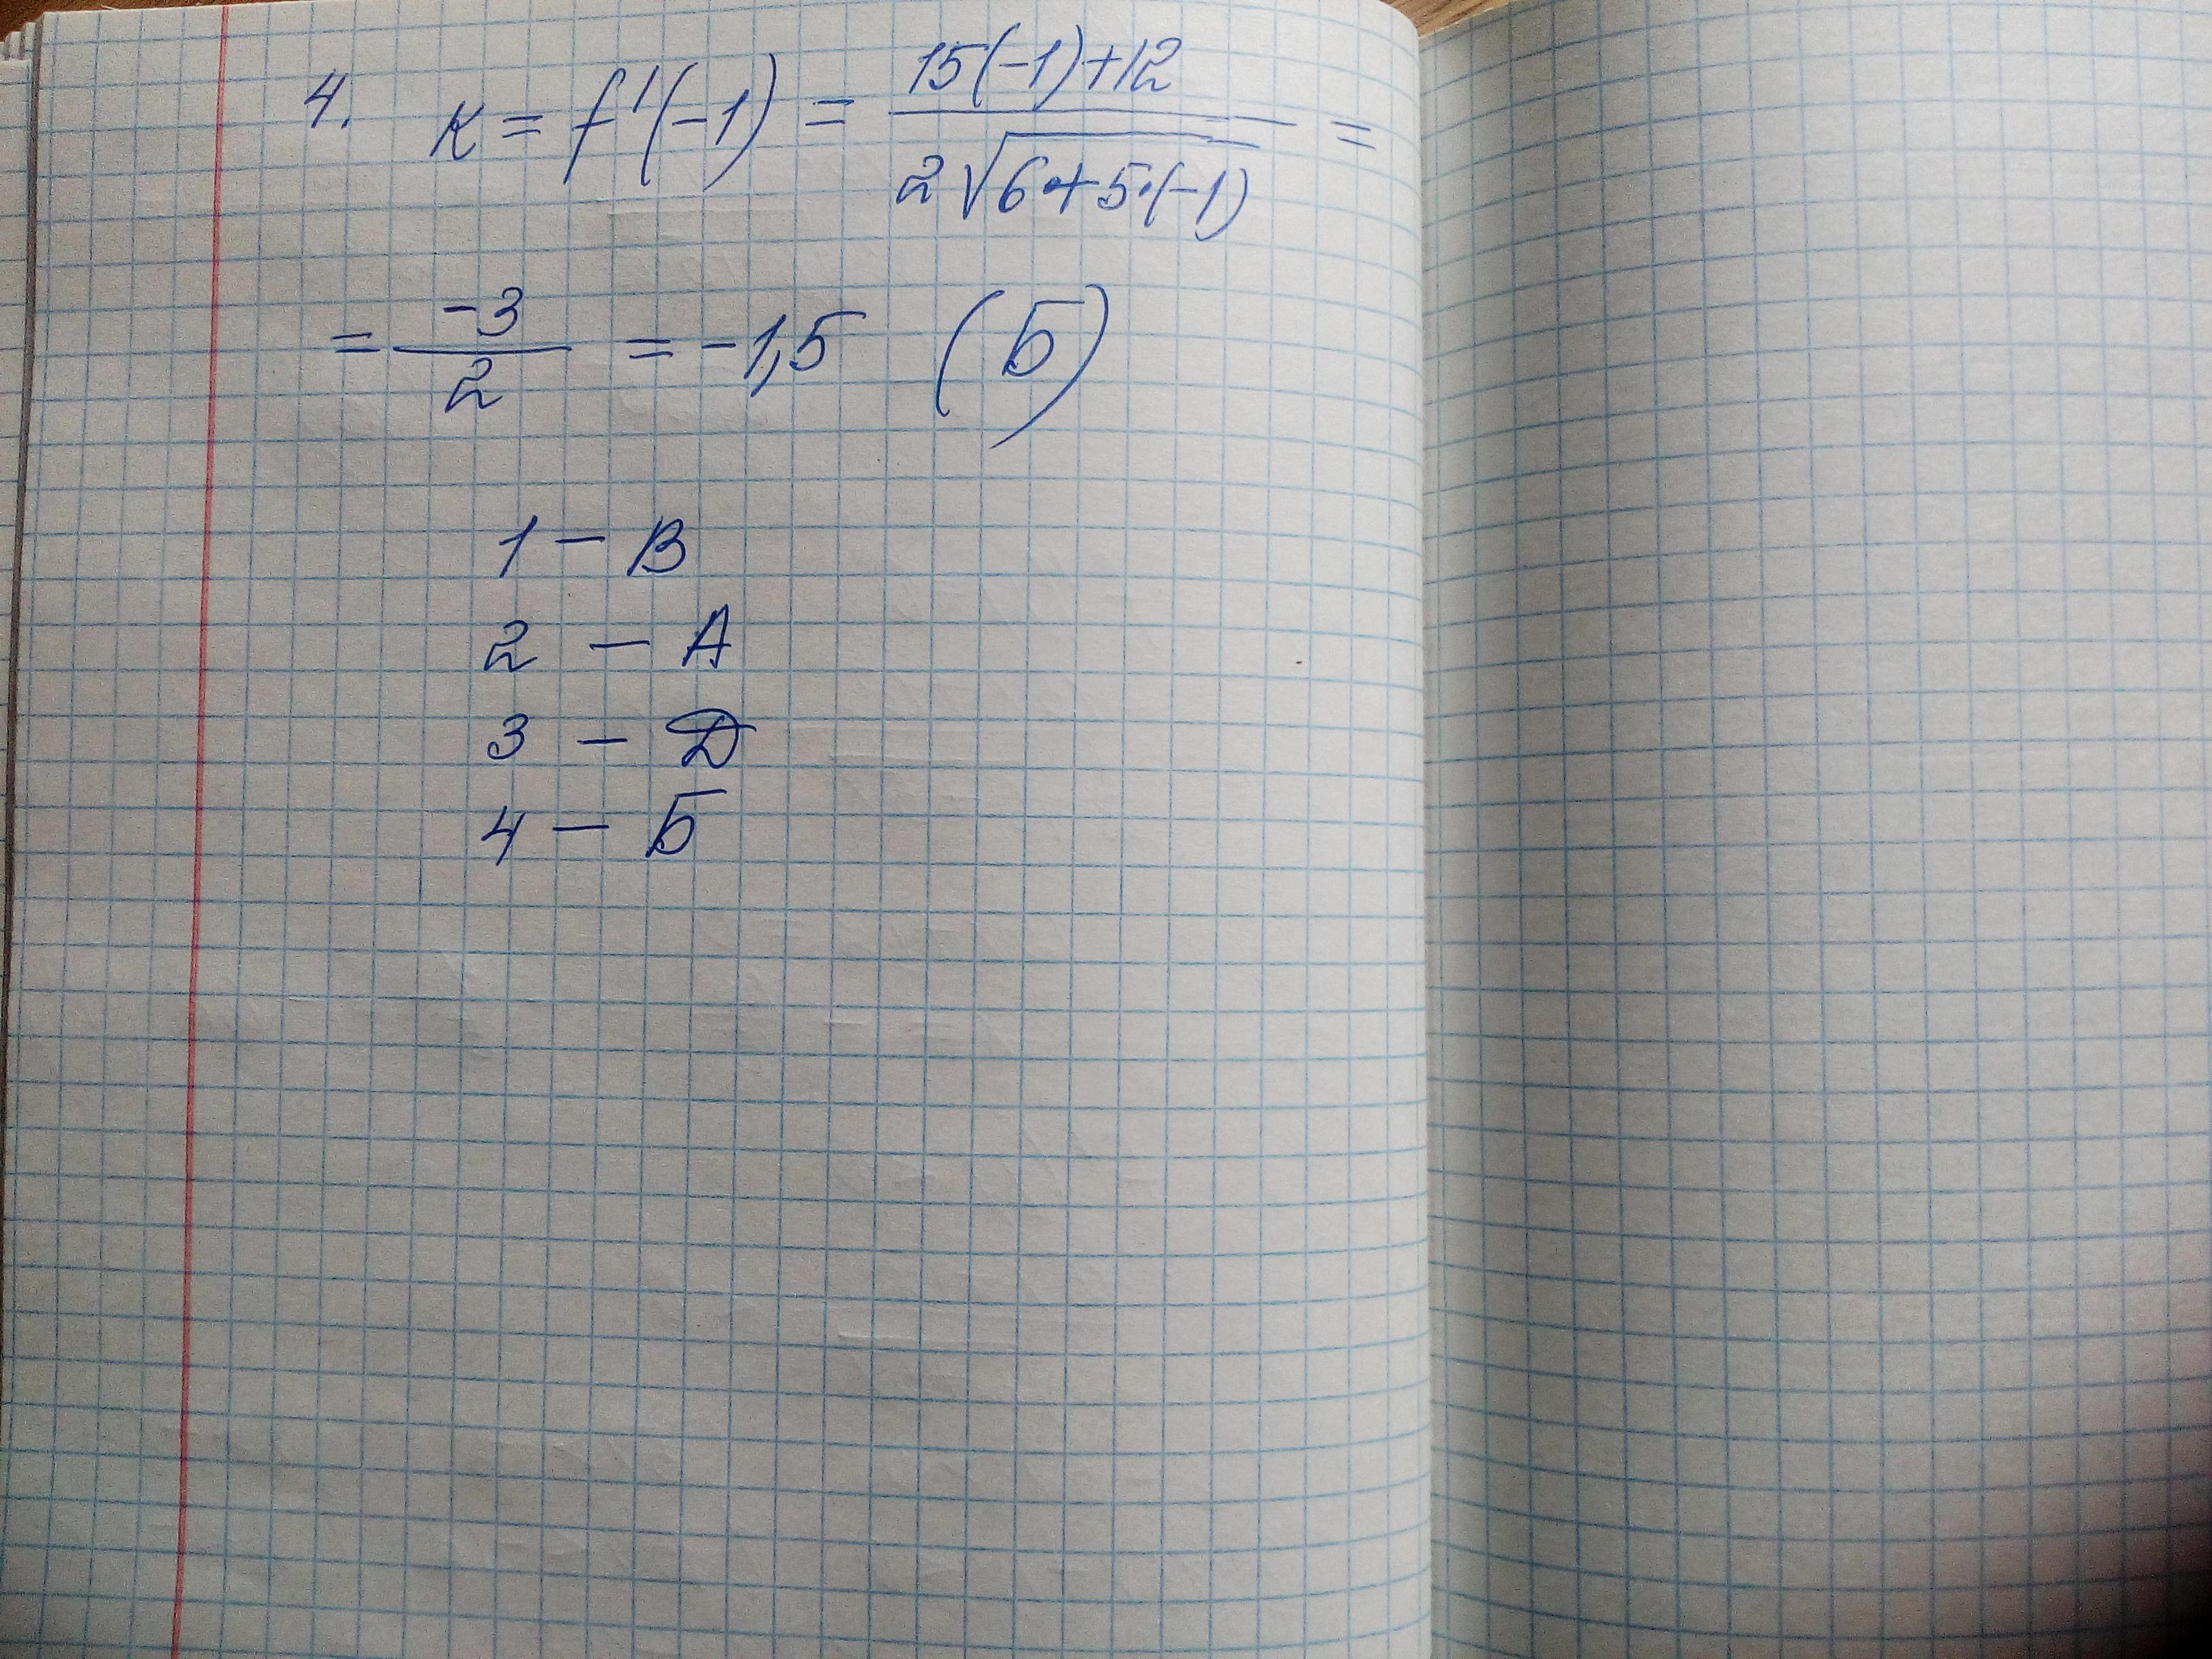 4. K = f'(-1) = \frac{15(-1)+12}{2\sqrt{6+5·(-1)}} =
= \frac{-3}{2} = -1,5 (Б)
1 – В
2 – А
3 – Д
4 – Б